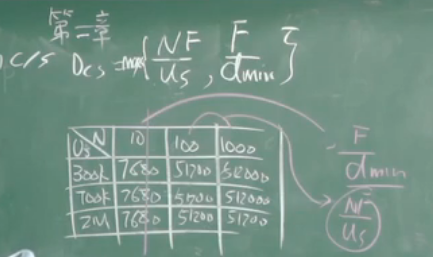 第二章
C/S Dcs = max{NF/Us, F/dmin}
Us N 10 100 1000
300k 7680 51200 512000
700k 7680 51200 512000
2M 7680 51200 51200
F/dmin
NF/Us